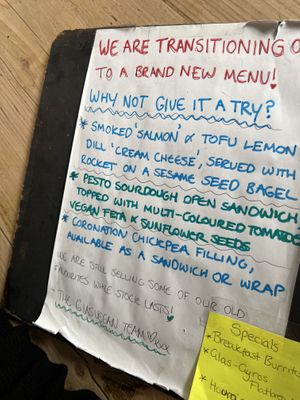 WE ARE TRANSITIONING O
TO A BRAND NEW MENU!
WHY NOT GIVE IT A TRY?
* SMOKED 'SALMON' & TOFU LEMON
DILL 'CREAM CHEESE', SERVED WITH
ROCKET ON A SESAME SEED BAGEL
* PESTO SOURDOUGH OPEN SANDWICH
TOPPED WITH MULTI-COLOURED TOMATOES
VEGAN FETA & SUNFLOWER SEEDS
* CORONATION CHICKPEA FILLING,
AVAILABLE AS A SANDWICH OR WRAP
WE ARE STILL SELLING SOME OF OUR OLD
FAVOURITES WHILE STOCK LASTS!
- THE GLASVEGAN TEAM
Specials
* Breakfast Burrito
* Glas-Gyros